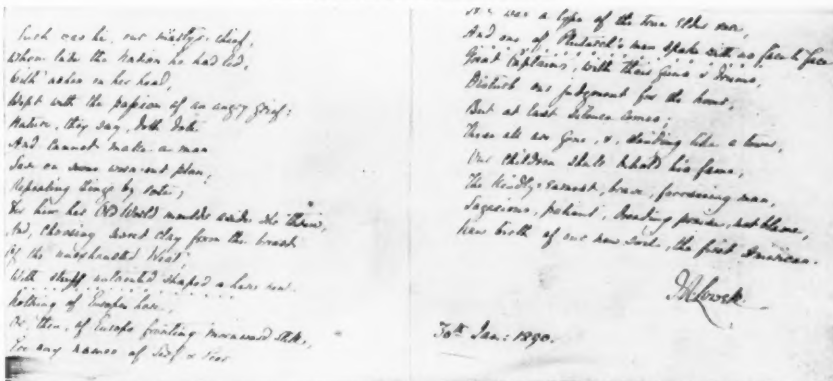 Such was he, our martyr-chief,
Whom late the Nation he had led,
With ashes on her head,
Wept with the passion of an angry grief:
Nature, they say, doth dote
And cannot make a man
Save on some worn-out plan,
Repeating us by rote;
For him her Old World moulds aside she threw,
And, choosing sweet clay from the breast
Of the unexhausted West,
With stuff untainted shaped a hero new.
Nothing of Europe here,
Or, then, of Europe fronting mornward still,
Ere any names of Serf & Peer
was a type of the true elder race,
And one of Plutarch's men spake with us face to face.
Great Captains, with their Guns & Drums,
Disturb our judgment for the hour,
But at last Silence comes;
These all are gone, &, standing like a tower,
Our children shall behold his fame,
The Kindly-earnest, brave, foreseeing man,
Sagacious, patient, dreading praise, not blame,
New birth of our new soil, the first American.
J. R. Lowell.
30th Jan: 1890.